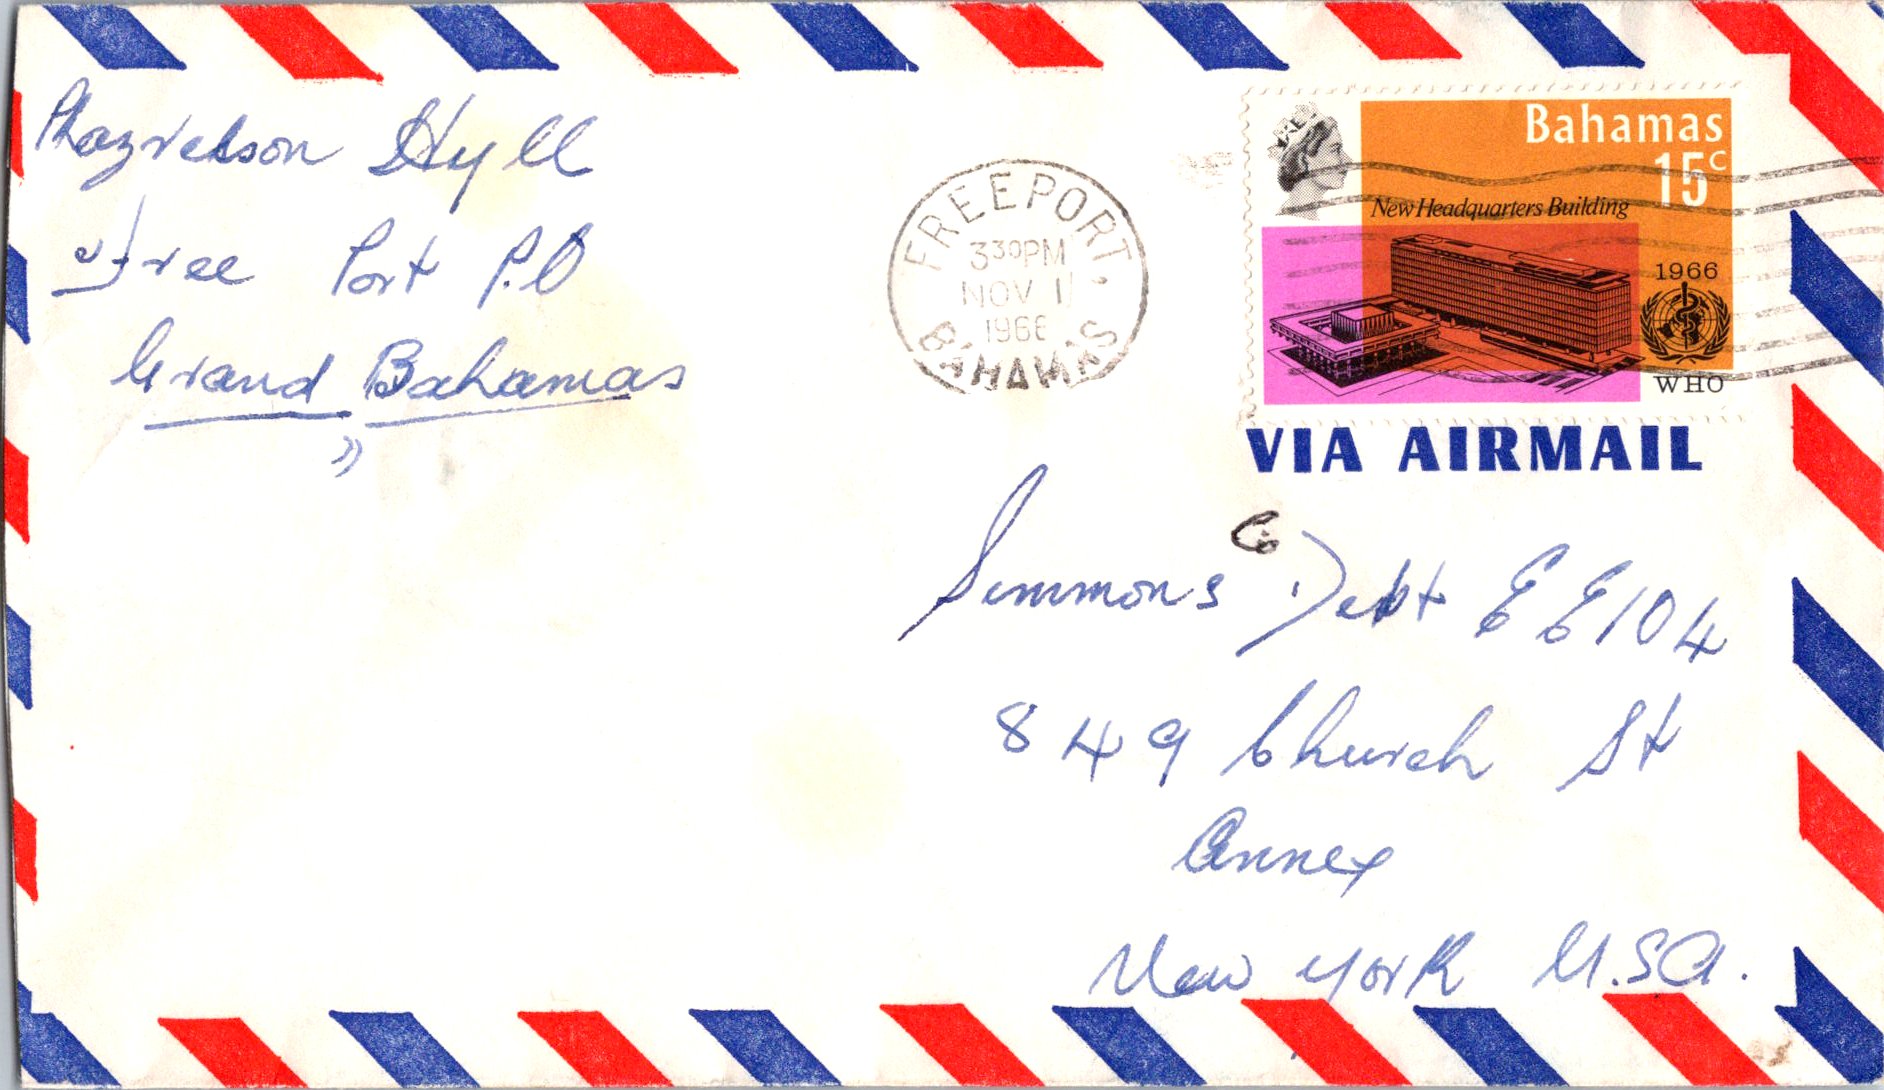 Hyll
Free Port P.O
Grand Bahamas
"
FREEPORT,
330PM
NOV 1
1966
BAHAMAS
Bahamas
15c
New Headquarters Building
1966
WHO
VIA AIRMAIL
Co
Simmons Dept EE104
849 Church St
Annex
New York U.S.A.